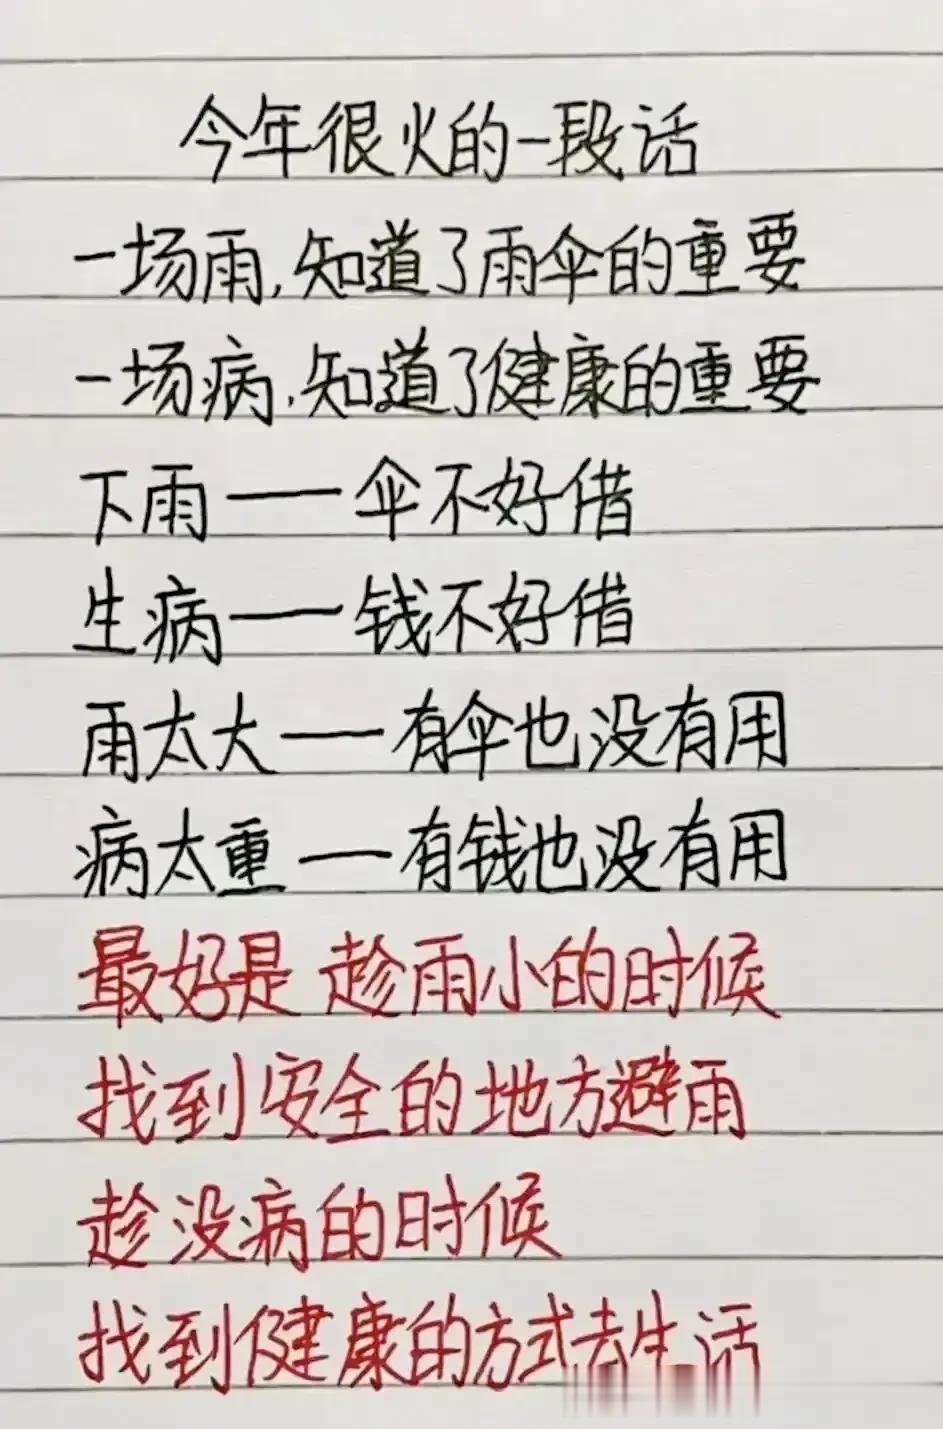 今年很火的一段话
一场雨,知道了雨伞的重要
一场病,知道了健康的重要
下雨——伞不好借
生病——钱不好借
雨太大——有伞也没有用
病太重——有钱也没有用
最好是趁雨小的时候
找到安全的地方避雨
趁没病的时候
找到健康的方式去生活